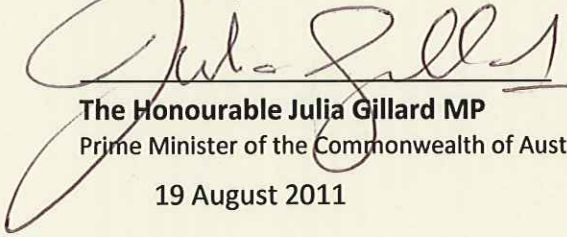 Julia Gillard
The Honourable Julia Gillard MP
Prime Minister of the Commonwealth of Aust
19 August 2011